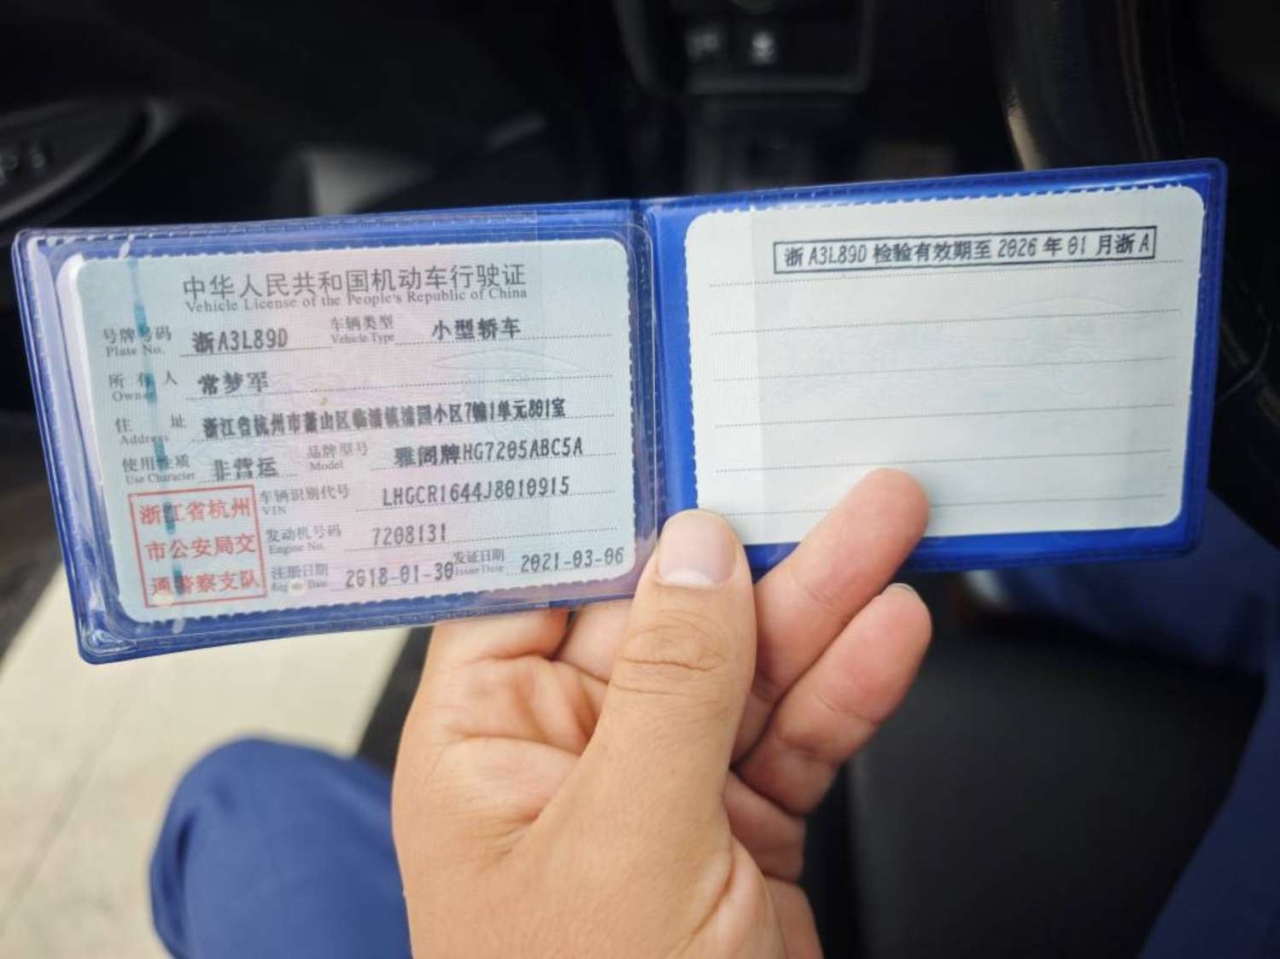 中华人民共和国机动车行驶证
Vehicle License of the People's Republic of China
号牌号码 浙A3L89D 车辆类型 小型轿车
Plate No. Vehicle Type
所有人 常梦军
Owner
住址 浙江省杭州市萧山区临浦镇浦园小区7幢1单元801室
Address
使用性质 非营运 品牌型号 雅阁牌HG7205ABC5A
Use Character Model
车辆识别代号 LHGCR1644J8010915
VIN
发动机号码 7208131
Engine No.
注册日期 2018-01-30 发证日期 2021-03-06
浙江省杭州
市公安局交
通警察支队
浙A3L89D 检验有效期至2026年01月浙A